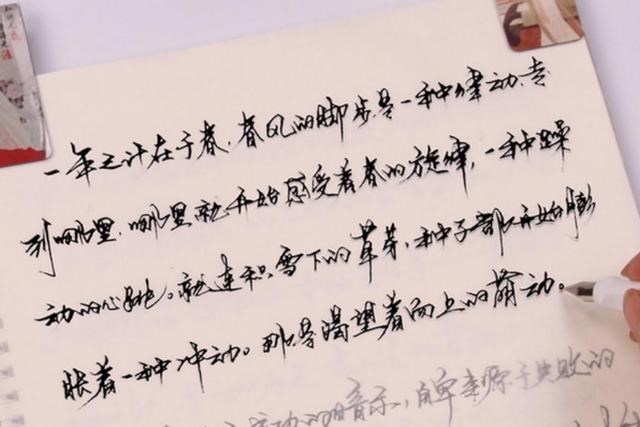 一年之计在于春,春风的脚步是一种律动、走
到哪里,哪里就开始感受着春的旋律,一种躁
动的心跳。就连积雪下的草芽,种子都开始膨
胀着一种冲动。那是渴望着向上的萌动。
动的暗示,自卑来源于失败的